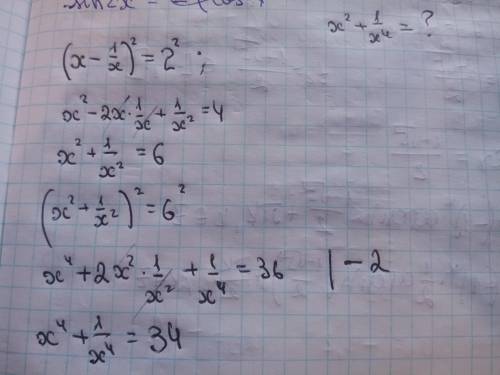 x² + 1/x⁴ = ?
(x - 1/x)² = 2² ;
x² - 2x · 1/x + 1/x² = 4
x² + 1/x² = 6
(x² + 1/x²)² = 6²
x⁴ + 2x² · 1/x² + 1/x⁴ = 36 | - 2
x⁴ + 1/x⁴ = 34